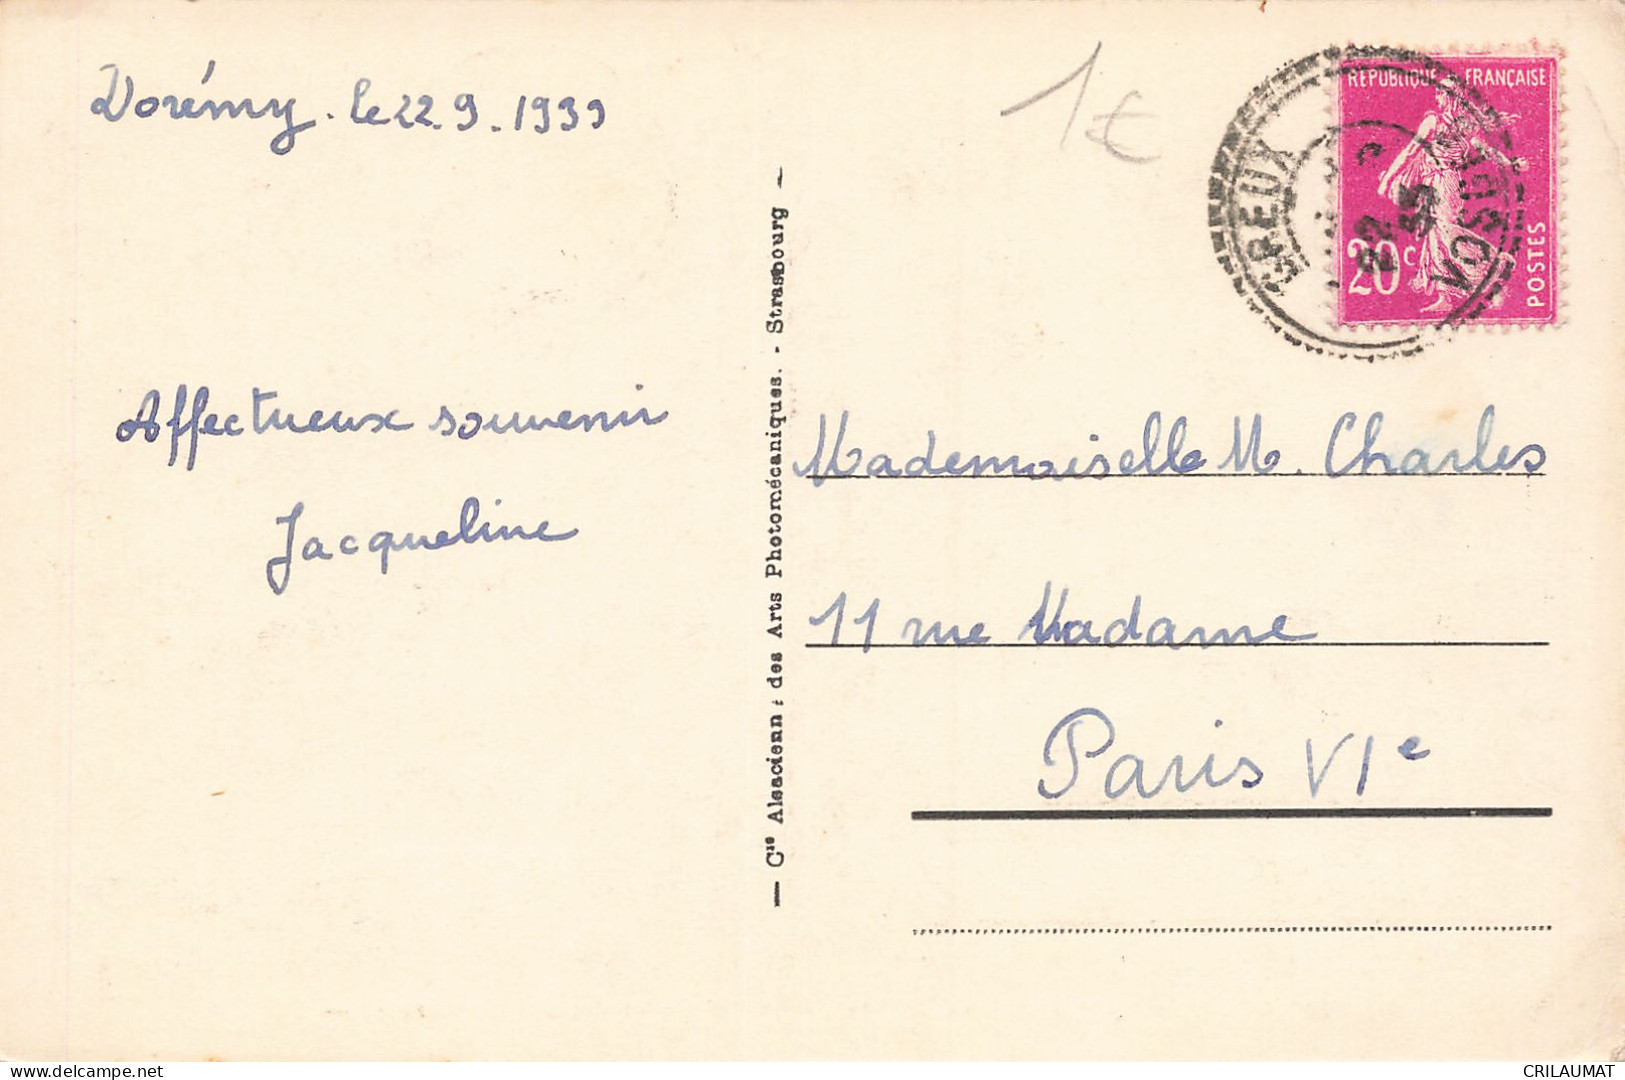 Dorémy. le 22.9.1939
1€
RÉPUBLIQUE FRANÇAISE
20c
POSTES
GREUX
22
VOSGES
Affectueux souvenir
Jacqueline
— Cie Alsacienne des Arts Photomécaniques. - Strasbourg —
Mademoiselle M. Charles
11 rue Madame
Paris VIe
delcampe.net
CRILAUMAT